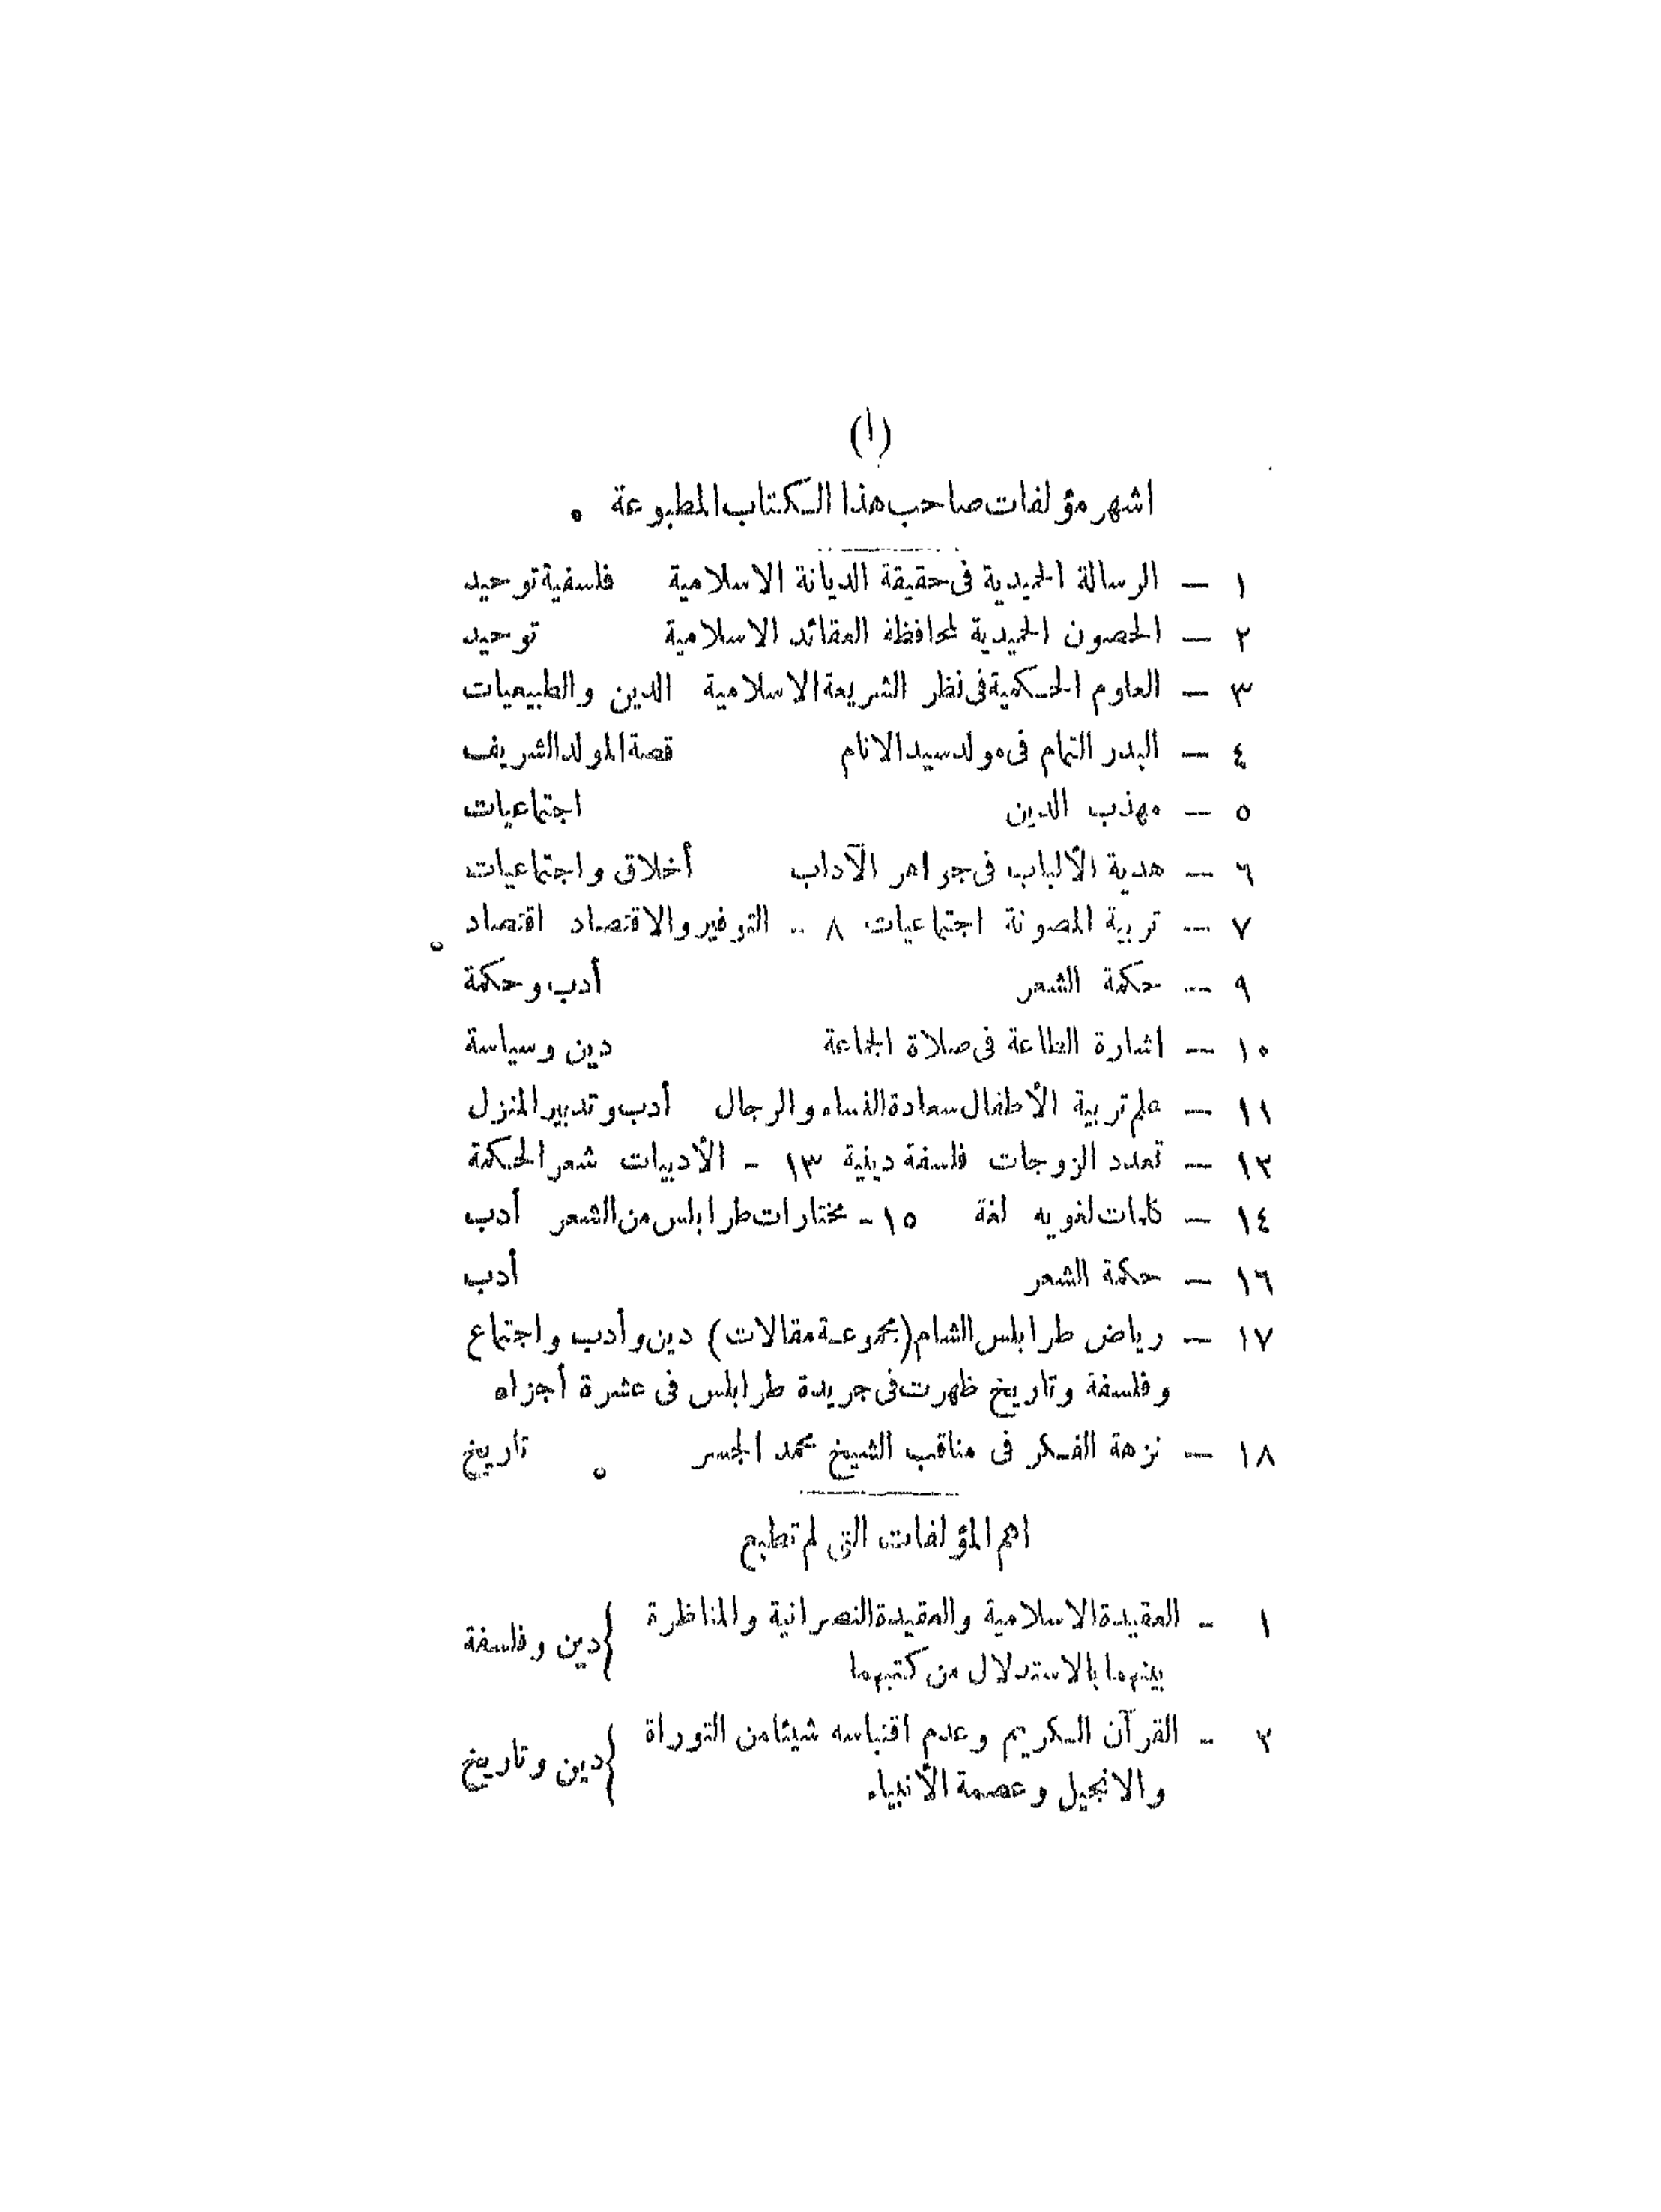 (ا)
اشهر مؤلفات صاحب هذا الكتاب المطبوعة .
١ — الرسالة الحميدية فى حقيقة الديانة الاسلامية فلسفية توحيد
٢ — الحصون الحميدية لمحافظة العقائد الاسلامية توحيد
٣ — العلوم الحكمية فى نظر الشريعة الاسلامية الدين والطبيعيات
٤ — البدر التمام فى مولد سيد الانام قصة المولد الشريف
٥ — مهذب الدين اجتماعيات
٦ — هدية الألباب فى جواهر الآداب أخلاق واجتماعيات
٧ — تربية المصونة اجتماعيات ٨ - التوفير والاقتصاد اقتصاد
٩ — حكمة الشعر أدب وحكمة
١٠ — اشارة الطاعة فى صلاة الجماعة دين وسياسة
١١ — علم تربية الأطفال سعادة النساء والرجال أدب وتدبير المنزل
١٢ — تعدد الزوجات فلسفة دينية ١٣ - الأدبيات شعر الحكمة
١٤ — كلمات لغويه لغة ١٥ - مختارات طرابلس من الشعر أدب
١٦ — حكمة الشعر أدب
١٧ — رياض طرابلس الشام (مجموعة مقالات) دين وأدب واجتماع
وفلسفة وتاريخ ظهرت فى جريدة طرابلس فى عشرة أجزاء
١٨ — نزهة الفكر فى مناقب الشيخ محمد الجسر تاريخ
اهم المؤلفات التى لم تطبع
١ - العقيدة الاسلامية والعقيدة النصرانية والمناظرة
بينهما بالاستدلال من كتبهما } دين وفلسفة
٢ - القرآن الكريم وعدم اقتباسه شيئا من التوراة
والانجيل وعصمة الأنبياء } دين وتاريخ